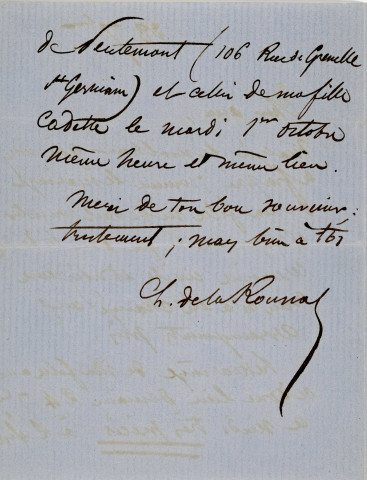 de Neutemont (106 Rue de Grenelle
St Germain) et celui de ma fille
Cadette le mardi 1er octobre
même heure et même lieu.
Merci de ton bon souvenir :
tristement ; mais bien à toi
Ch. de la Rounat